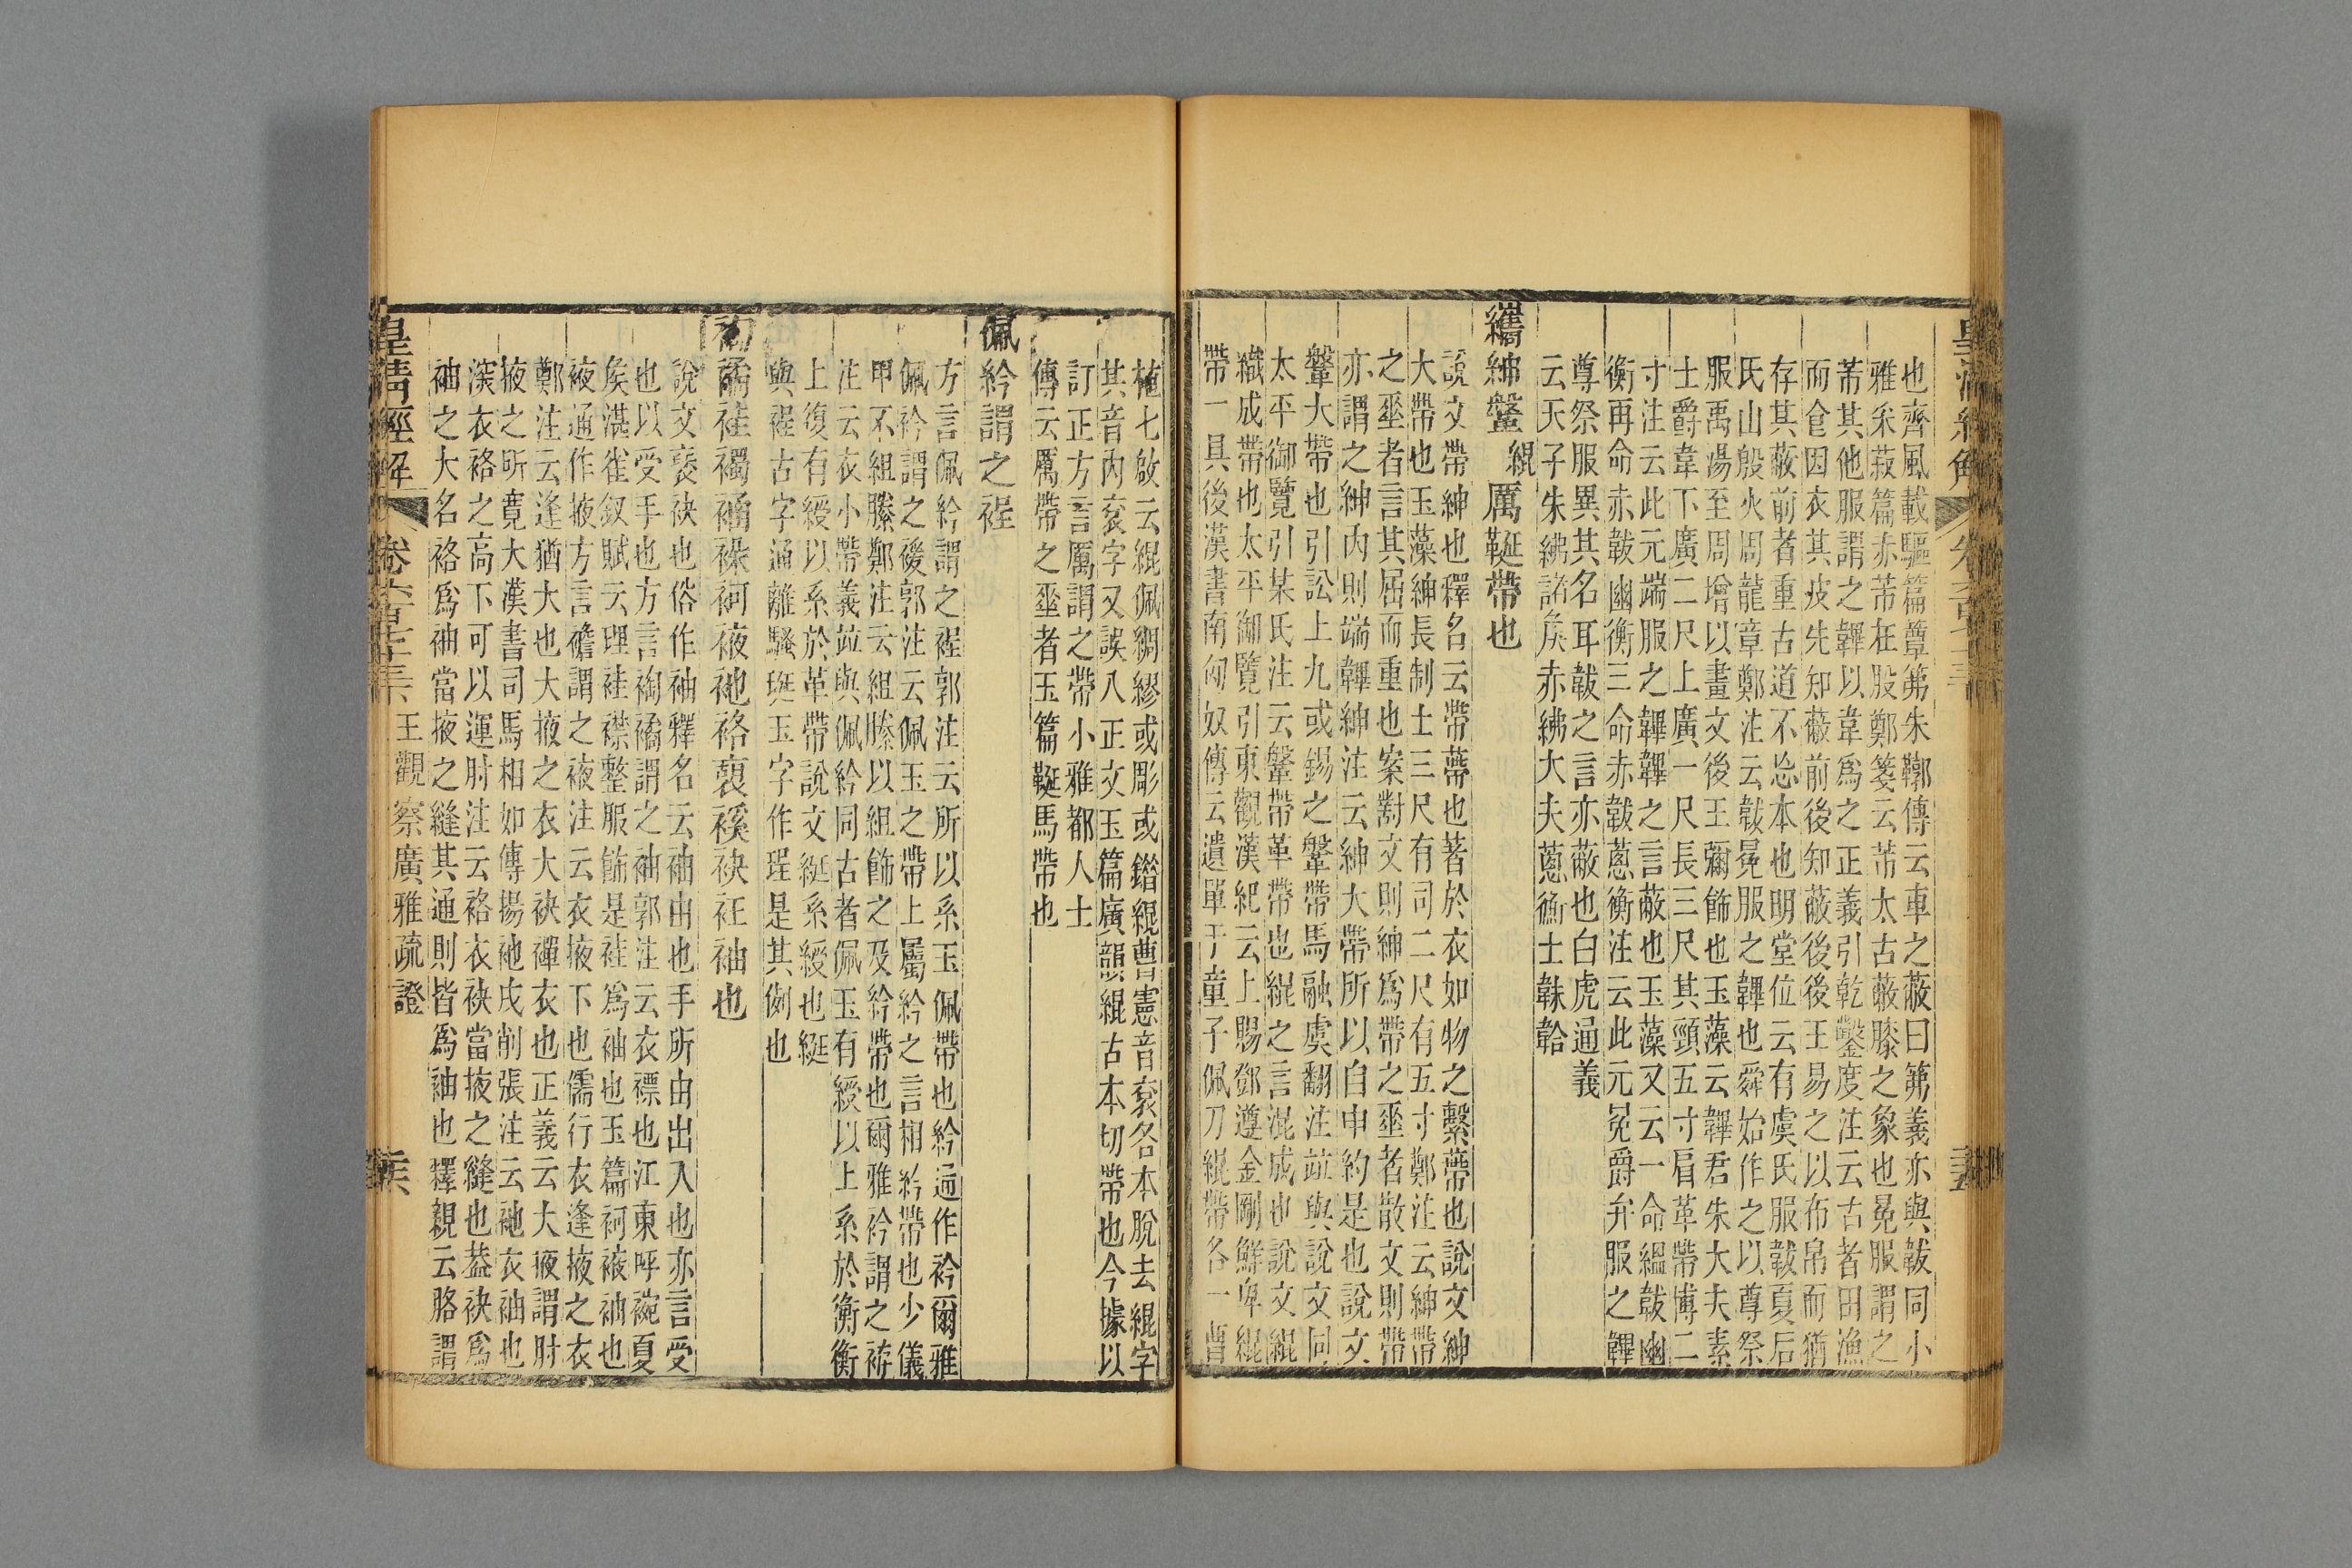 也齊風載驅篇簟笰朱鞹傳云車之蔽曰笰義亦與韍同小
雅采菽篇赤芾在股鄭箋云芾太古蔽膝之象也冕服謂之
芾其他服謂之韠以韋爲之正義引乾鑿度注云古者田漁
而食因衣其皮先知蔽前後知蔽後後王易之以布帛而猶
存其蔽前者重古道不忘本也明堂位云有虞氏服韍夏后
氏山殷火周龍章鄭注云韍冕服之韠也舜始作之以尊祭
服禹湯至周增以畫文後王彌飾也玉藻云韠君朱大夫素
士爵韋下廣二尺上廣一尺長三尺其頸五寸肩革帶博二
寸注云此元端服之韠韠之言蔽也玉藻又云一命縕韍幽
衡再命赤韍幽衡三命赤韍蔥衡注云此元冕爵弁服之韠
尊祭服異其名耳韍之言亦蔽也白虎通義
云天子朱紼諸矦赤紼大夫蔥衡士韎韐
䌨紳鞶緄厲䩥帶也
說文帶紳也釋名云帶蔕也著於衣如物之繫蔕也說文紳
大帶也玉藻紳長制士三尺有司二尺有五寸鄭注云紳帶
之垂者言其屈而重也案對文則紳爲帶之垂者散文則帶
亦謂之紳內則端韠紳注云紳大帶所以自申約是也說文
鞶大帶也引訟上九或錫之鞶帶馬融虞翻注竝與說文同
太平御覽引某氏注云鞶帶革帶也緄之言混成也說文緄
織成帶也太平御覽引東觀漢紀云上賜鄧遵金剛鮮卑緄
帶一具後漢書南匈奴傳云遺單于童子佩刀緄帶各一曹
植七啟云緄佩綢繆或彫或錯緄曹憲音衮各本脫去緄字
其音內衮字又誤入正文玉篇廣韻緄古本切帶也今據以
訂正方言厲謂之帶小雅都人士
傳云厲帶之垂者玉篇䩥馬帶也
佩紟謂之裎
方言佩紟謂之裎郭注云所以系玉佩帶也紟通作衿爾雅
佩衿謂之褑郭注云佩玉之帶上屬紟之言相紟帶也少儀
甲不組縢鄭注云組縢以組飾之及紟帶也爾雅衿謂之袸
注云衣小帶義竝與佩紟同古者佩玉有綬以上系於衡衡
上復有綬以系於革帶說文綎系綬也綎
與裎古字通離騷珽玉字作珵是其例也
裪襦袿襡𧛔褬袔袯袘袼褱褎袂袵袖也
說文褎袂也俗作袖釋名云袖由也手所由出入也亦言受
也以受手也方言裪䙔謂之袖郭注云衣褾也江東呼䘼夏
矦湛雀釵賦云理袿襟整服飾是袿爲袖也玉篇袔袯袖也
袯通作掖方言襜謂之袯注云衣掖下也儒行衣逢掖之衣
鄭注云逢猶大也大掖之衣大袂禪衣也正義云大掖謂肘
掖之所寬大漢書司馬相如傳揚袘戌削張注云袘衣袖也
深衣袼之高下可以運肘注云袼衣袂當掖之縫也葢袂爲
袖之大名袼爲袖當掖之縫其通則皆爲袖也釋親云胳謂
皇清經解 卷六百七十三 王觀察廣雅疏證